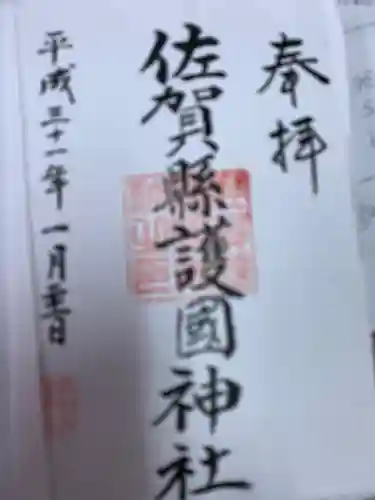 奉拝
佐賀縣護國神社
平成三十一年一月五日